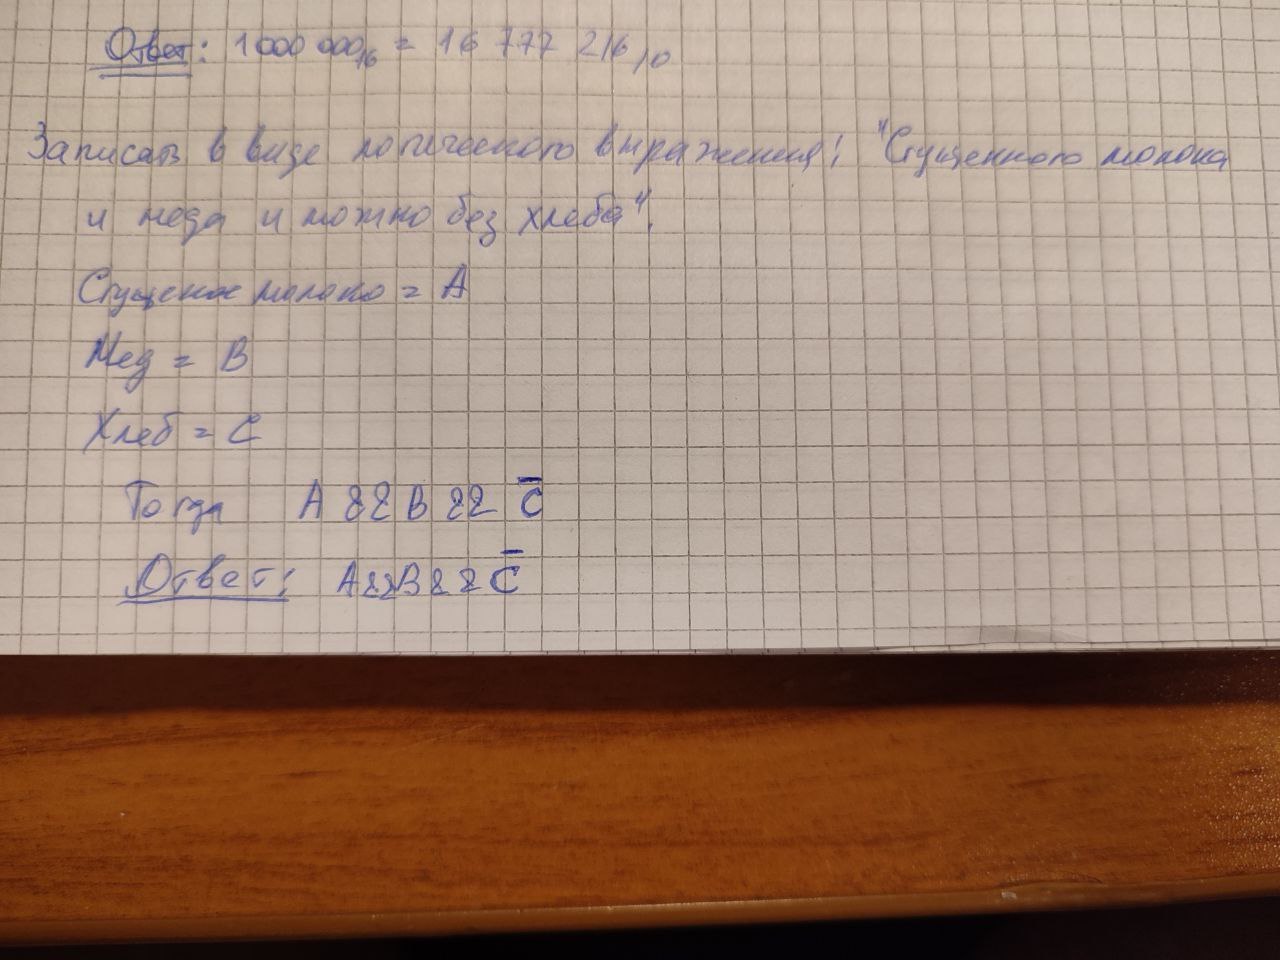 Ответ: 1 000 000₁₆ = 16 777 216₁₀
Записать в виде логического выражения: "Сгущенного молока
и меда и можно без хлеба".
Сгущеное молоко = А
Мед = В
Хлеб = С
Тогда А && В && C̅
Ответ: А&&В&&C̅